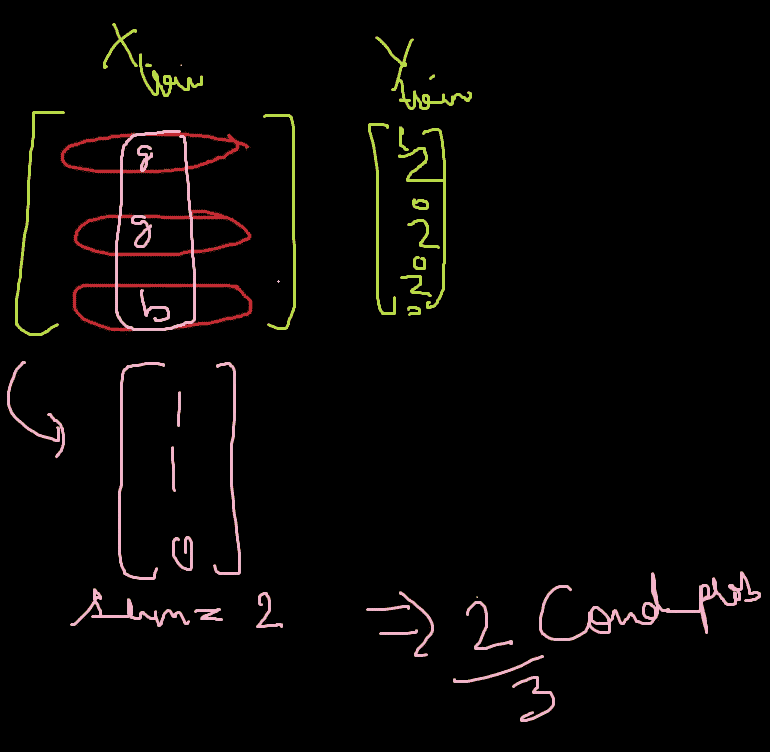 X train
Y train
g
g
b
1
2
0
2
0
2
2
1
1
0
sum = 2
⇒ 2/3 Cond prob